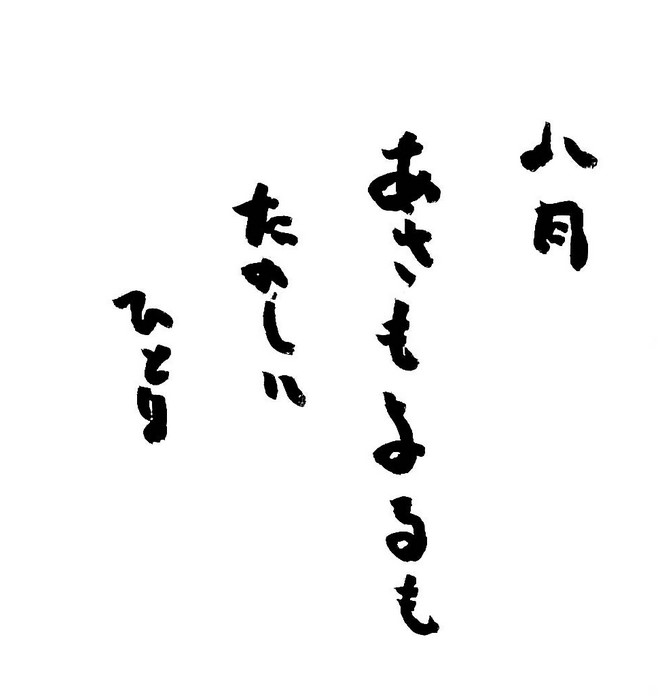 八月
あさもよるも
たのしい
ひとり